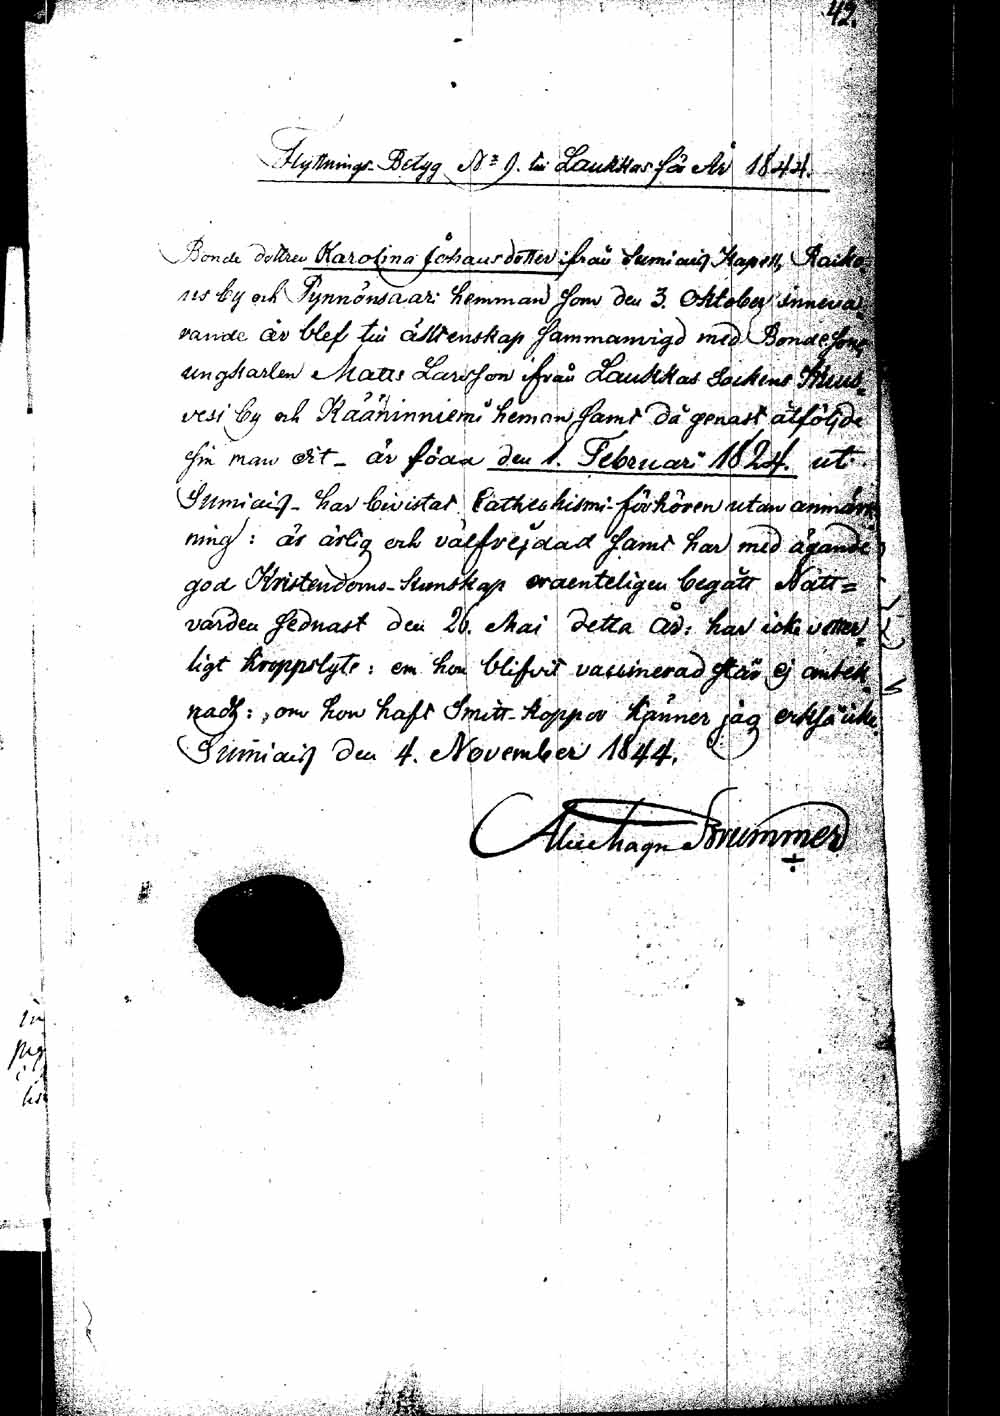 42.
Flyttnings-Betyg No 9. till Laukkas för År 1844.
Bonde dottren Karolina Johansdotter ifrån Sumiais Kapell, Raiko-
us by och Pynnönsaari hemman som den 3. Oktober inneva-
rande år blef till äktenskap sammanvigd med Bonde Son
ungkarlen Matts Larsson ifrån Laukkas Sockens Kuus-
vesi by och Kääninniemi heman samt då genast åtföljde
sin man dit - är född den 1. Februari 1824. uti
Sumiais - har bivistat Cathechismi-förhören utan anmärk-
ning: är ärlig och välfrejdad samt har med ägande
god Kristendoms-kunskap ordenteligen begått Natt=
varden sednast den 26. Mai detta År: har icke vetter-
ligt kroppslyte: om hon blifvit vaccinerad står ej anteck-
nadt: om hon haft Smitt-koppor känner jag ickeså icke.
Sumiais den 4. November 1844.
Brummer
in